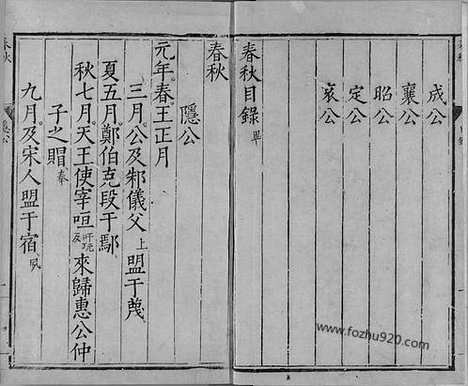 成公
襄公
昭公
定公
哀公
春秋目錄畢
春秋
隱公
元年春王正月
三月公及邾儀父上盟于蔑
夏五月鄭伯克段于鄢
秋七月天王使宰咺吁阮反來歸惠公仲
子之賵奉
九月及宋人盟于宿夙
春秋
www.fozhu920.com